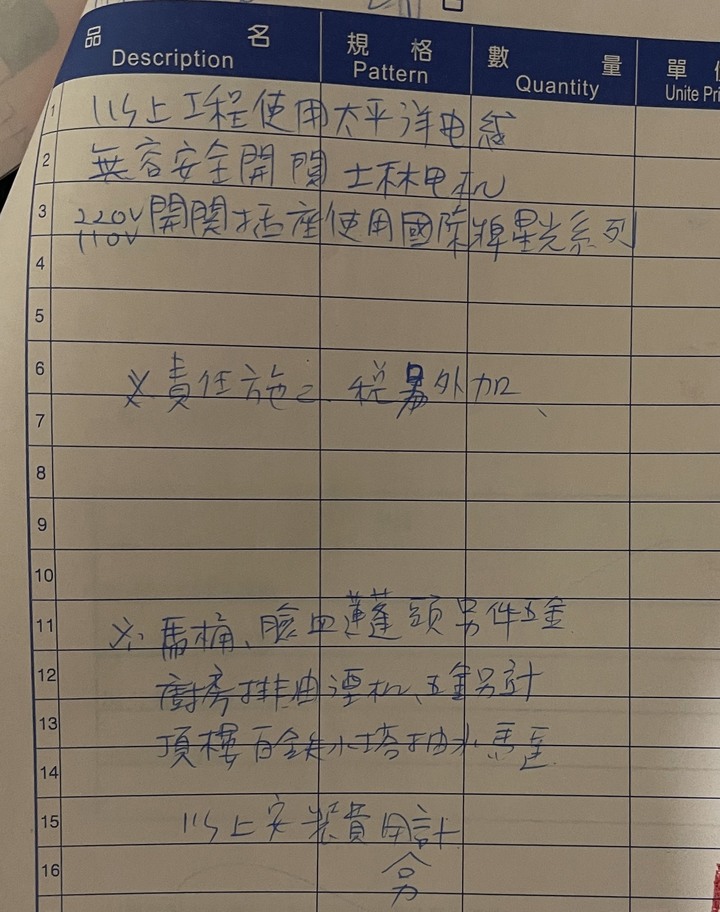 品 名 規 格 數 量 單
Description Pattern Quantity Unite Pri
1 以上工程使用太平洋电線
2 無容安全開関 士林电机
3 220V 110V 開関插座使用國際牌星光系列
4
5
6 ※責任施工 稅另外加、
7
8
9
10
11 ※馬桶、臉血蓮蓬頭另件五金
12 廚房排油煙机、五金另計
13 頂樓白鉄水塔抽水馬達
14
15 以上安裝費用計
16 另